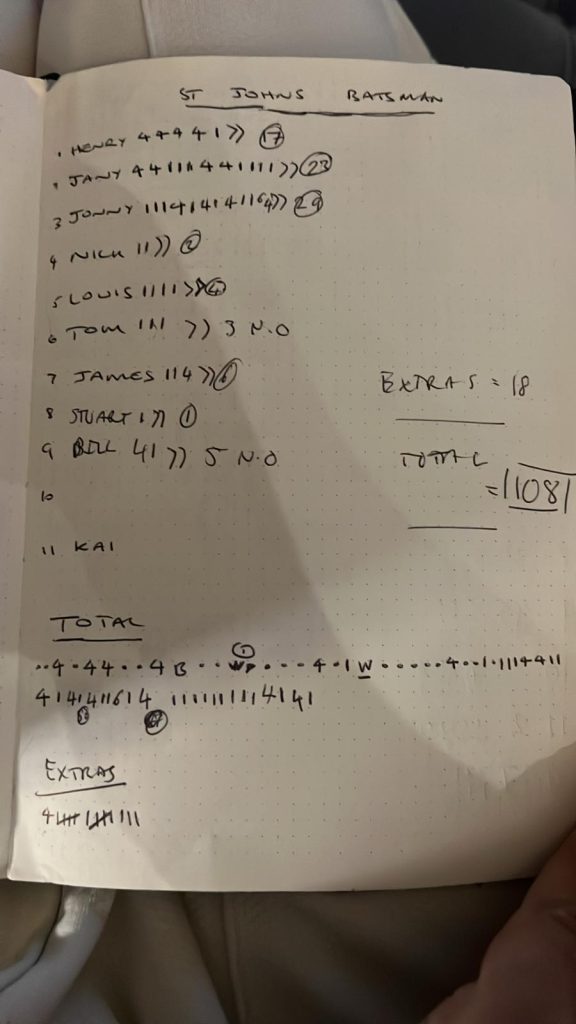 ST JOHNS BATSMAN
1 HENRY 4 4 4 4 1 >> 17
2 JANY 4 4 1 1 1 1 4 4 1 1 1 1 >> 23
3 JONNY 1 1 1 4 1 4 1 4 1 1 6 4 >> 29
4 NICK 1 1 >> 2
5 LOUIS 1 1 1 1 >> 4
6 TOM 1 1 1 >> 3 N.O
7 JAMES 1 1 4 >> 6
EXTRAS = 18
8 STUART 1 >> 1
9 BILL 4 1 >> 5 N.O
TOTAL
= 108
10
11 KAI
TOTAL
1
. . 4 . 4 4 . . 4 B . . W . . . . 4 . 1 W . . . . . . 4 . . 1 . 1 1 1 4 4 1 1
4 1 4 1 4 1 1 6 1 4 1 1 1 1 1 1 1 1 1 4 1 4 1
EXTRAS
4